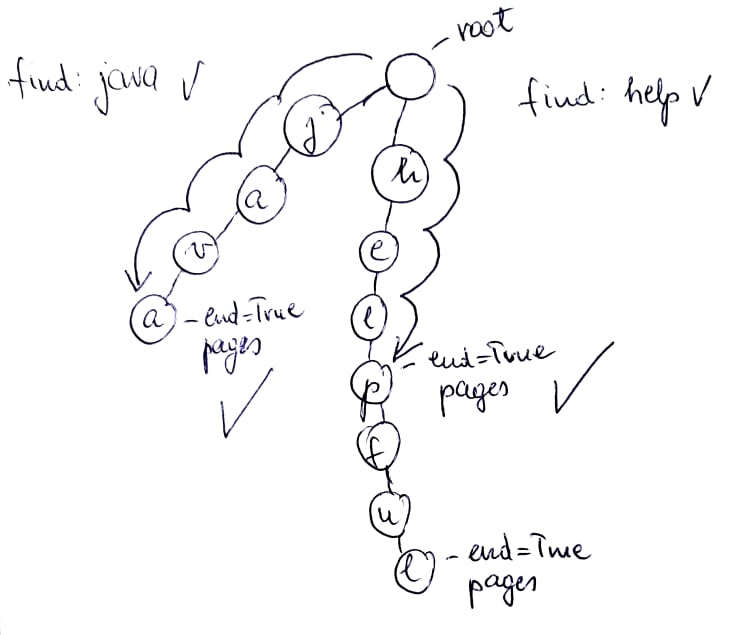 root
find: java ✓
find: help ✓
j
h
a
e
v
a - end=True
pages
l
- end=True
p
pages
f
u
l - end=True
pages